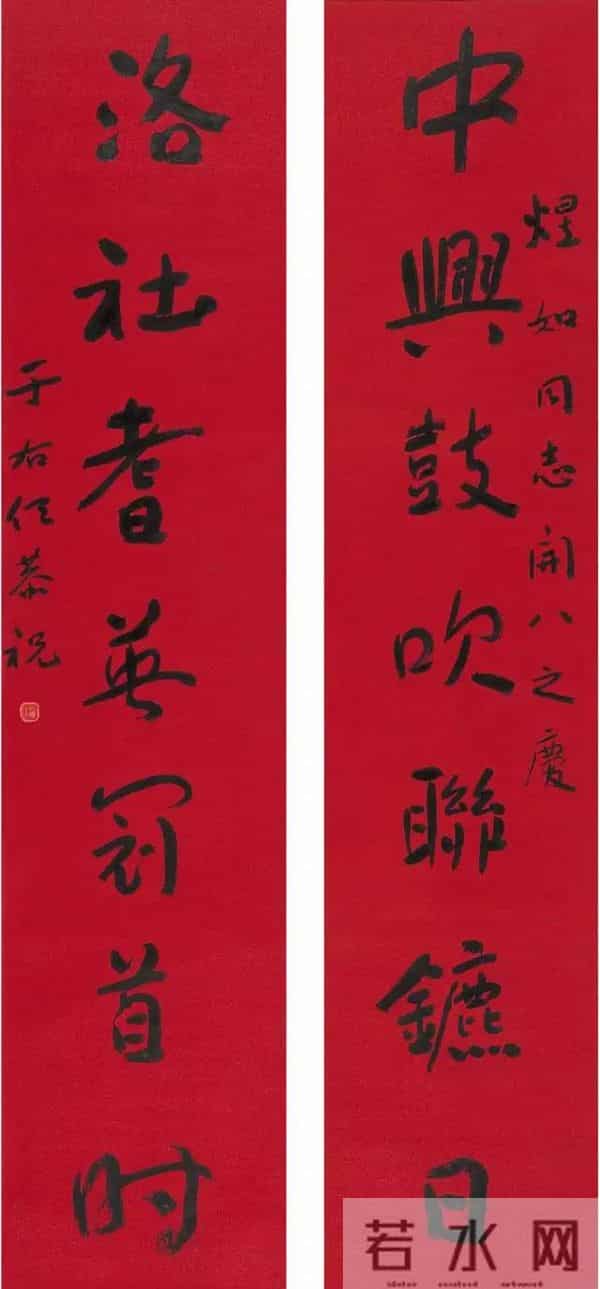 煋如同志開八之慶
中興鼓吹聯鑣日
洛社耆英冠首时
于右任恭祝
若水网